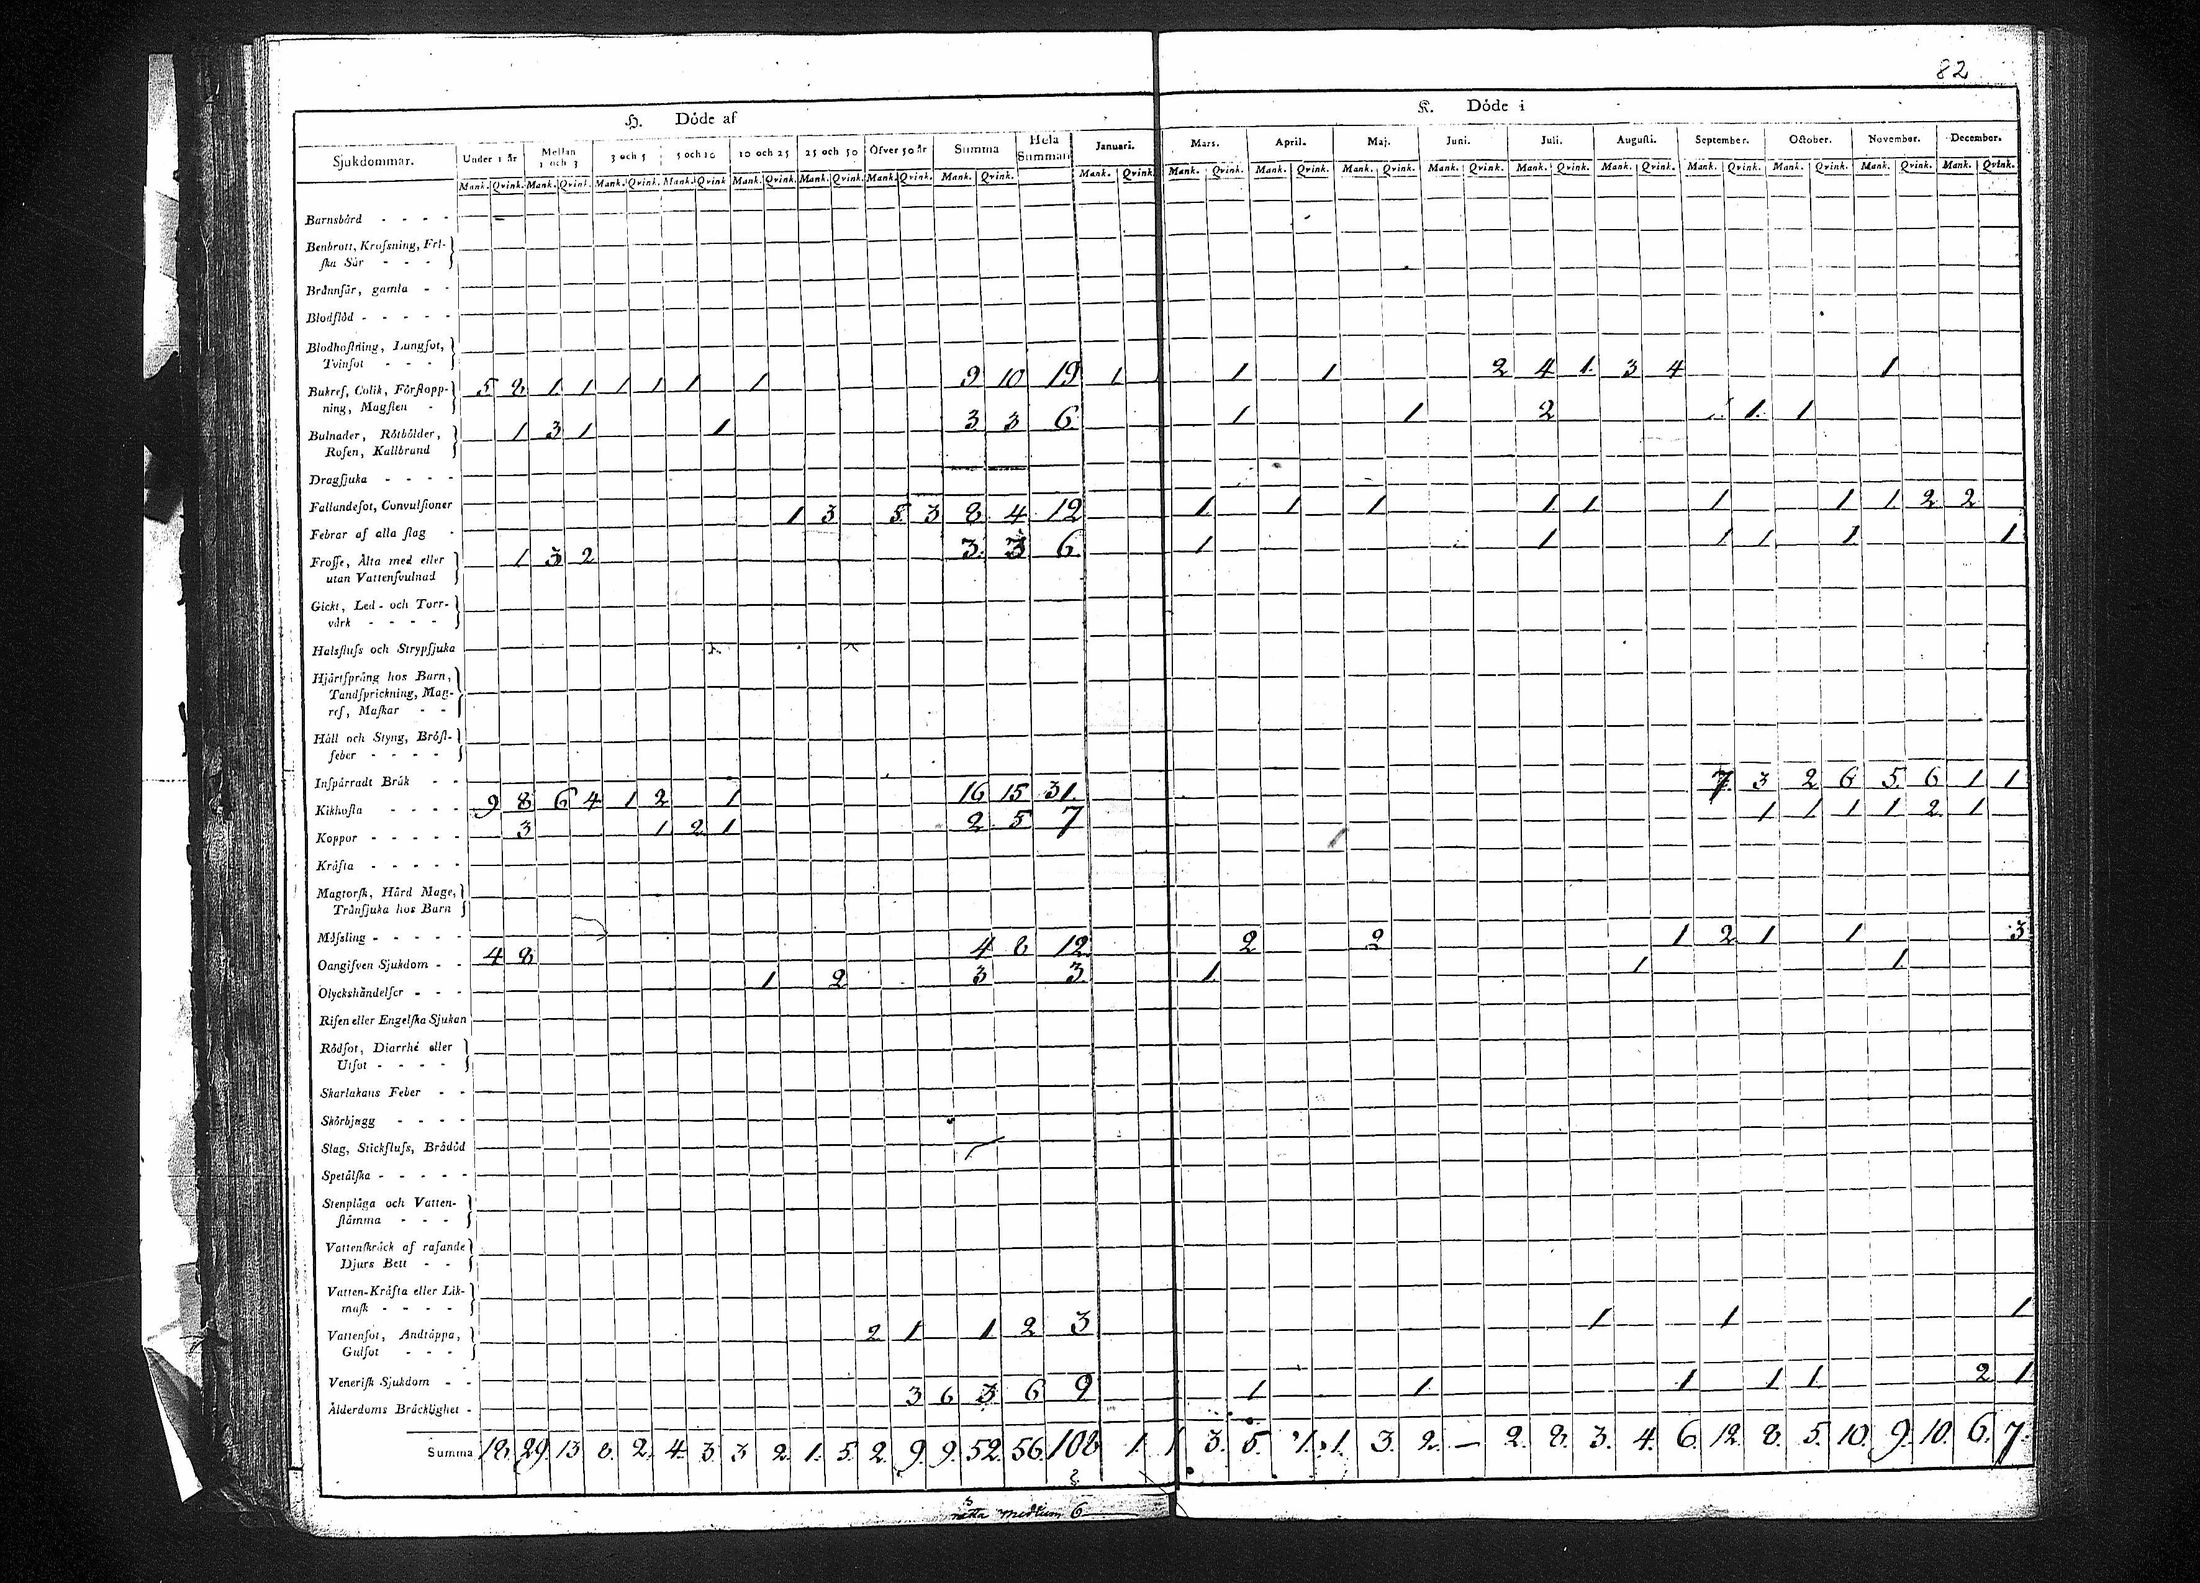 82
H. Döde af
K. Döde i
Sjukdommar. Under 1 år Mellan 1 och 3 3 och 5 5 och 10 10 och 25 25 och 50 Öfver 50 år Summa Hela Summan Januari. Mars. April. Maj. Juni. Juli. Augusti. September. October. November. December.
Mank. Qvink. Mank. Qvink. Mank. Qvink. Mank. Qvink. Mank. Qvink. Mank. Qvink. Mank. Qvink. Mank. Qvink. Mank. Qvink. Mank. Qvink. Mank. Qvink. Mank. Qvink. Mank. Qvink. Mank. Qvink. Mank. Qvink. Mank. Qvink. Mank. Qvink. Mank. Qvink. Mank. Qvink.
Barnsbörd - - - -
Benbrott, Krosſning, Fri-
ſka Sår - - -
Brännſår, gamla - -
Blodflöd - - - - -
Blodhoſtning, Lungſot,
Tvinſot - - -
5 8 1 1 1 1 1 1 9 10 19 1 1 1 2 4 1. 3 4 1
Bukref, Colik, Förſtopp-
ning, Magſten -
1 3 1 1 3 3 6 1 1 2 1. 1. 1
Bulnader, Rötbölder,
Roſen, Kallbrand
Dragſjuka - - - -
Fallandeſot, Convulſioner
1 3 5 3 8 4 12 1. 1 1 1. 1 1 1 1. 2 2
Febrar af alla ſlag -
1 3 2 3. 3 6. 1 1 1 1 1. 1
Froſſe, Älta med eller
utan Vattenſvulnad
Gickt, Led- och Torr-
värk - - - -
Halsfluſs och Strypſjuka
Hjärtſprång hos Barn,
Tandſprickning, Mag-
ref, Maſkar - -
Håll och Styng, Bröſt-
feber - - - -
Inſpärradt Bråk - -
9 8 6 4 1 2 1 16 15 31. 7 3 2 6 5. 6 1 1
Kikhoſta - - - -
3 1 2 1 2. 5 7 1 1 1 1 2 1
Koppor - - - - -
Kräfta - - - - -
Magtorſk, Hård Mage,
Tränſjuka hos Barn
Mäſsling - - - - -
4 8 4 8 12 2 2 1 2 1 1 3
Oangifven Sjukdom - -
1 2 3 3. 1. 1 1.
Olyckshändelſer - - -
Riſen eller Engelſka Sjukan
Rödſot, Diarrhé eller
Utſot - - - -
Skarlakans Feber - -
Skörbjugg - - - -
Slag, Stickfluſs, Brådöd
Spetälſka - - - - -
Stenplåga och Vatten-
ſtämma - - -
Vattenſkräck af raſande
Djurs Bett - -
Vatten-Kräfta eller Lik-
maſk - - - -
2 1 1 2 3 1 1 1
Vattenſot, Andtäppa,
Gulſot - - -
Veneriſk Sjukdom - -
3 6 3 6 9 1 1 1 1 1. 2 1
Ålderdoms Bräcklighet -
Summa 18. 29. 13 8. 2. 4. 3. 3 2. 1. 5. 2. 9. 9. 52. 56. 108 1. 1 3. 5. 1. 1. 3. 2. — 2. 8. 3. 4. 6. 12. 8. 5. 10. 9. 10. 6. 7.
rätta medium 6